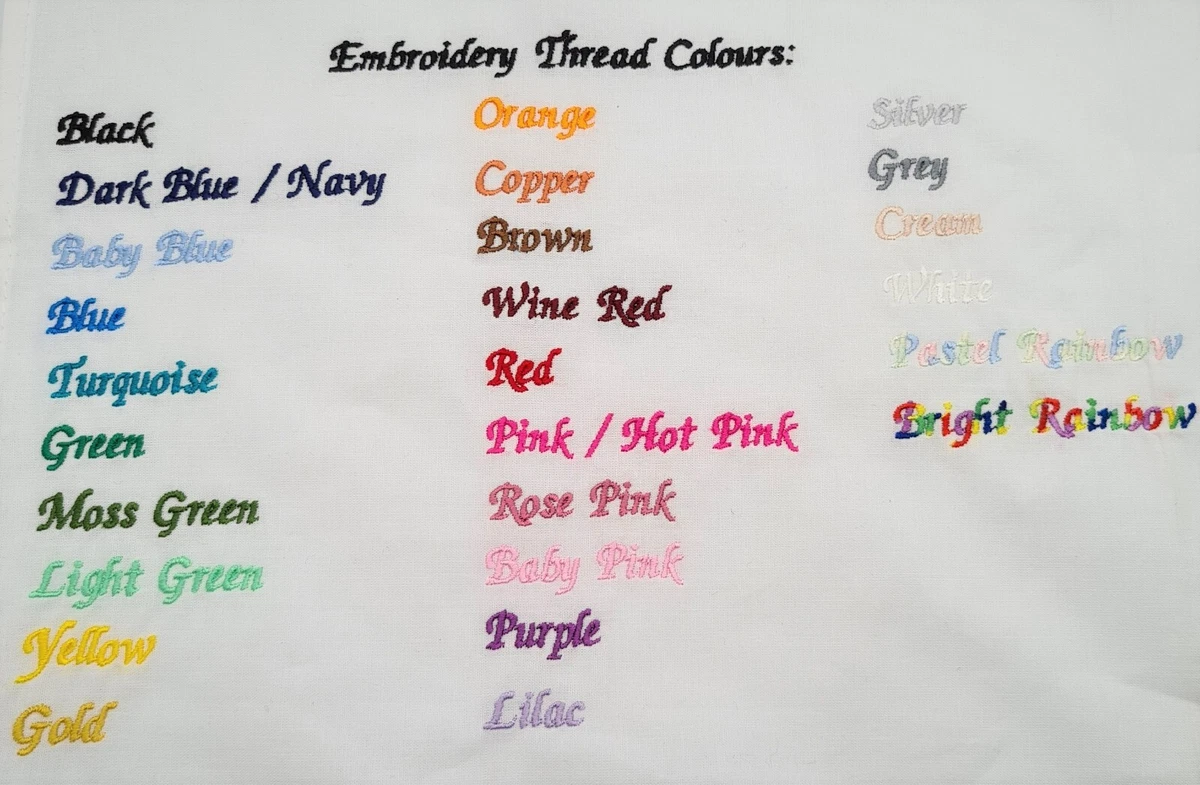 Embroidery Thread Colours:
Black
Dark Blue / Navy
Baby Blue
Blue
Turquoise
Green
Moss Green
Light Green
Yellow
Gold
Orange
Copper
Brown
Wine Red
Red
Pink / Hot Pink
Rose Pink
Baby Pink
Purple
Lilac
Silver
Grey
Cream
White
Pastel Rainbow
Bright Rainbow